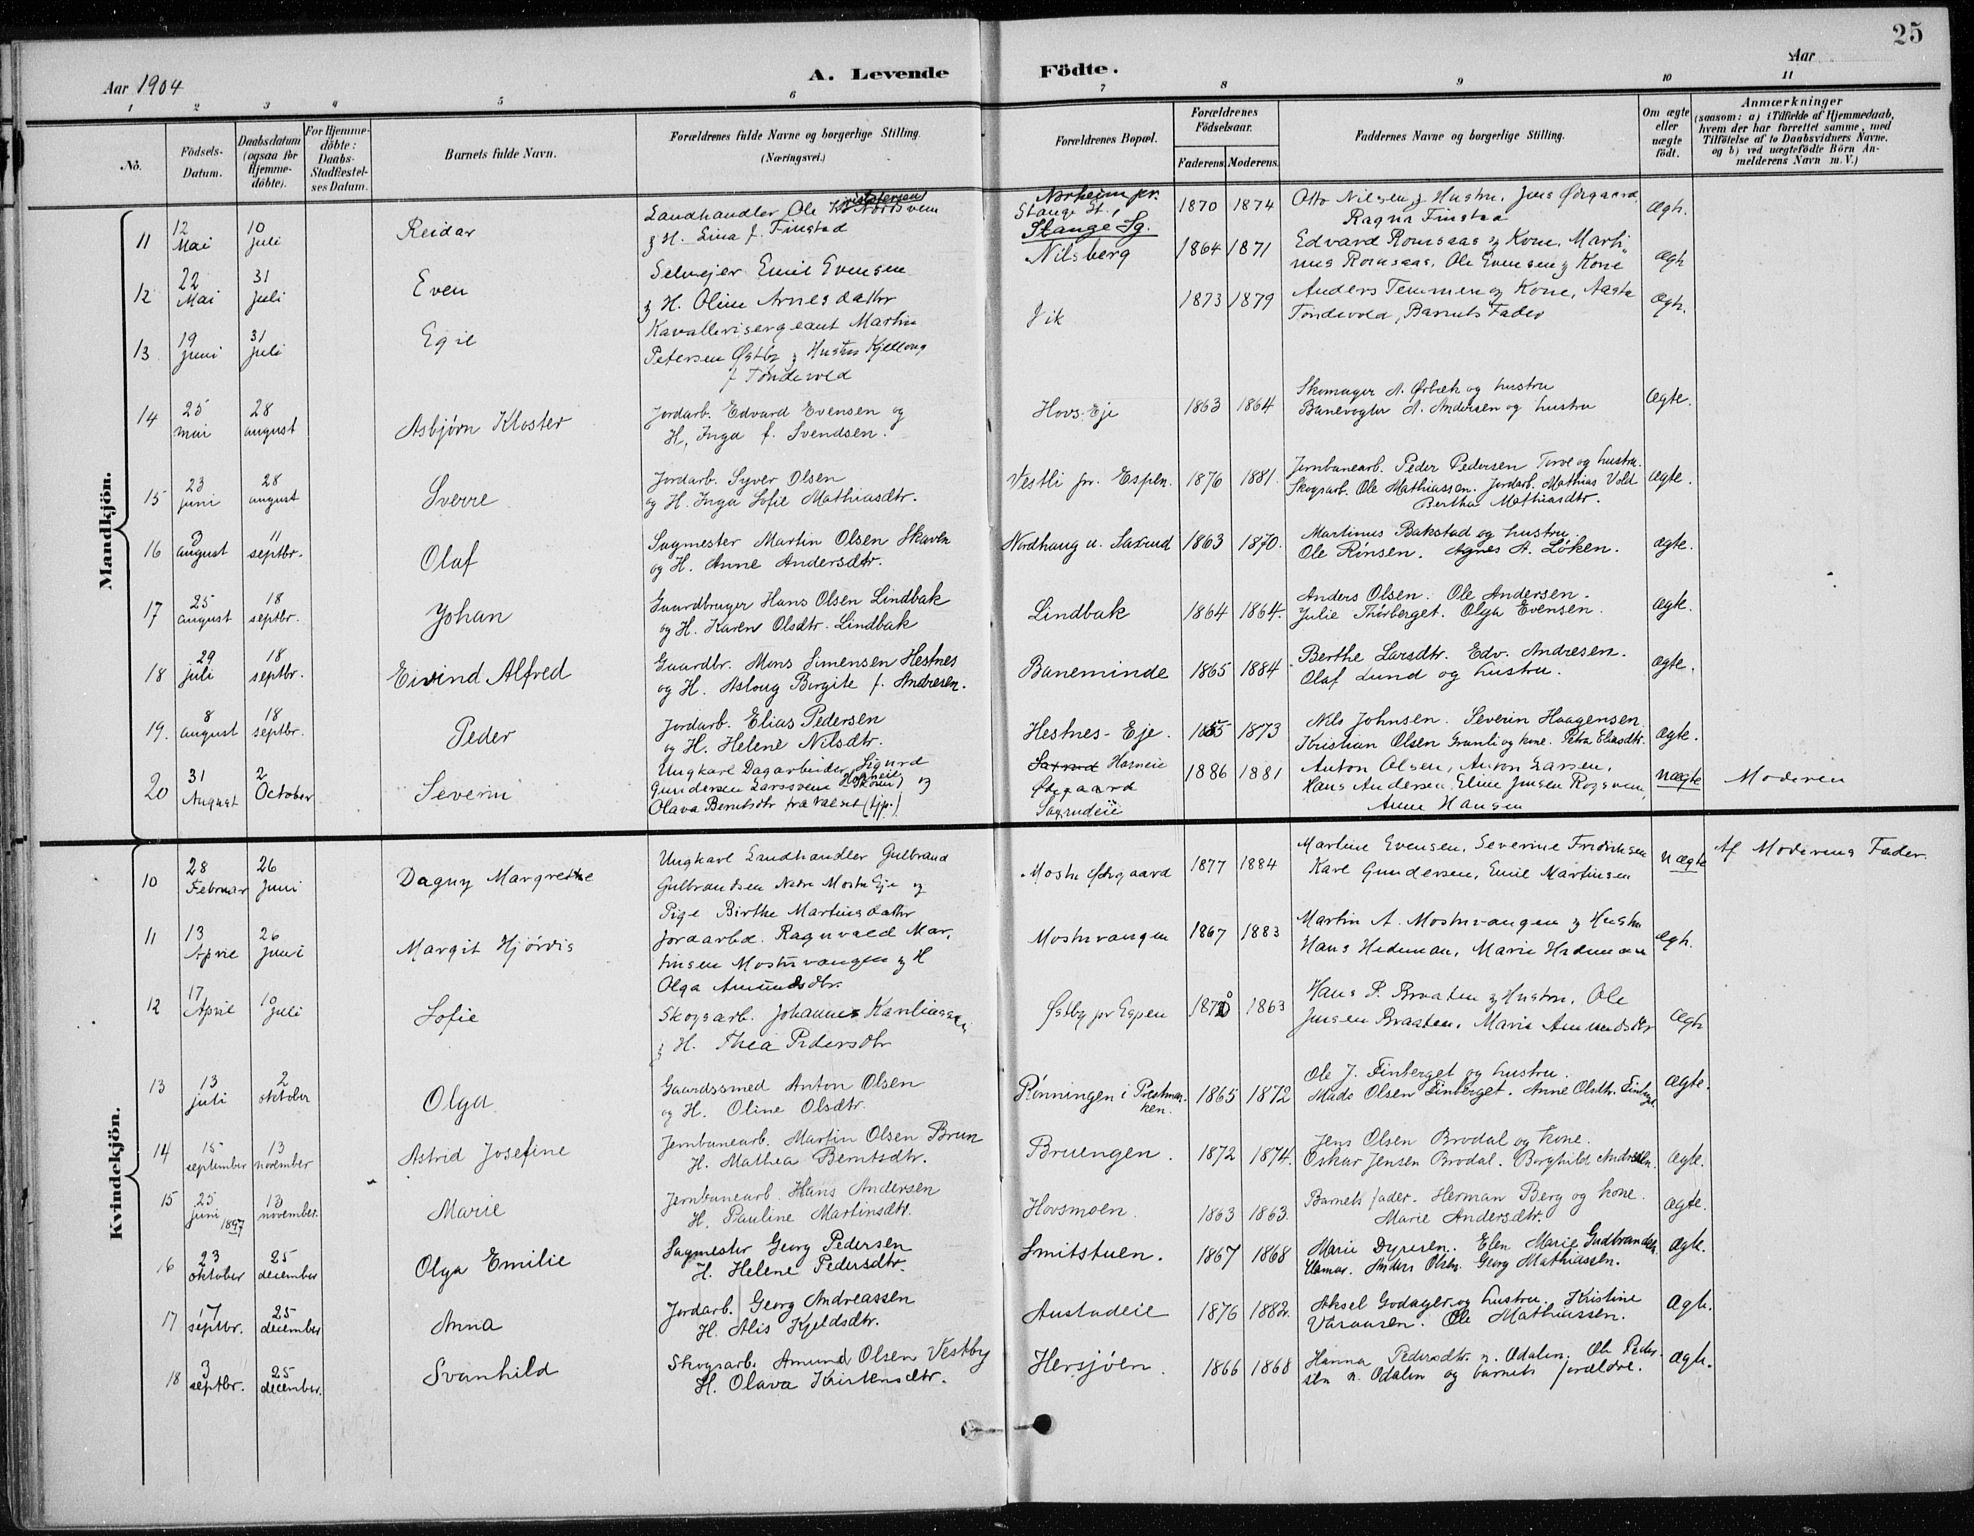 25
Aar 1904
A. Levende Födte.
Aar
1 2 3 4 5 6 7 8 9 10 11
No.
Födsels-Datum.
Daabsdatum (ogsaa for Hjemme-döbte).
For Hjemme-döbte: Daabs-Stadfæstel-ses Datum.
Barnets fulde Navn.
Forældrenes fulde Navne og borgerlige Stilling. (Næringsvei.)
Forældrenes Bopæl.
Forældrenes Födselsaar.
Faderens. Moderens.
Faddernes Navne og borgerlige Stilling.
Om ægte eller uægte födt.
Anmærkninger
(saasom: a) i Tilfælde af Hjemmedaab, hvem der har forrettet samme, med Tilföielse af to Daabsvidners Navne, og b) ved uægtefödte Börn An-melderens Navn m. V.)
Mandkjön.
11 12 Mai 10 Juli Reidar
Landhandler Ole Nordsveen
& H. Lina f. Finstad
Norheim pr.
Stange St.,
Stange Sg.
1870 1874
Otto Nilsen & Hustru, Jens Øvgaard
Ragna Finstad
Ægh.
12 22 Mai 31 Juli Even
Selvejer Emil Evensen
& H. Oline Arnesdatter
Nilsberg
1864 1871
Edvard Romsaas & Kone, Marti-
nus Romsaas, Ole Evensen & Kone
Ægh
13 19 Juni 31 Juli Egil
Kavallerisergeant Martin
Petersen Østby & Hustru Kjellaug
f. Tøndevold
Vik
1873 1879
Anders Temmen og Kone, Aasta
Tøndevold, Barnets Fader
Ægh.
14 25 mai 28 august Asbjørn Kloster
Jordarb. Edvard Evensen og
H. Inga f. Svendsen.
Hovs-Eje
1863 1864
Skomager A. Ørbæk og hustru
Banevogter A. Andersen og hustru
Ægte.
15 23 juni 28 august Sverre
Jordarb. Syver Olsen
og H. Inga Sofie Mathiasdtr.
Vestli pr. Espen.
1876 1881.
Jernbanearb. Peder Pedersen Torve og hustru.
Skogsarb. Ole Mathiassen. Jordarb. Mathias Vold
Bertha Mathiasdtr.
Ægte.
16 3 august 11 septbr. Olaf
Sagmester Martin Olsen Skaven
og H. Anne Andersdtr.
Nordhaug u. Saxrud
1863 1870.
Martinus Bakstad og hustru.
Ole Rønsen. Agnes A. Løken.
ægte.
17 25 august 18 septbr. Johan
Gaardbruger Hans Olsen Lindbak
og H. Karen Olsdtr. Lindbak
Lindbak
1864 1864.
Anders Olsen. Ole Andersen.
Julie Thorberget. Olga Evensen.
ægte.
18 29 juli 18 septbr. Eivind Alfred
Gaardbr. Mons Simensen Hestnes
og H. Aslaug Birgite f. Andresen.
Baneminde
1865 1884
Berthe Larsdtr. Edv. Andresen.
Olaf Lund og hustru.
ægte.
19. 8 august 18 septbr. Peder
Jordarb. Elias Pedersen
og H. Helene Nilsdtr.
Hestnes-Eje.
1855 1873
Nils Johnsen. Severin Haagensen
Kristian Olsen Granli og kone. Petra Eliasdtr.
ægte.
20 31 August 2 October Severin
Ungkarl Dagarbeider Sigurd
Gundersen Larssveen og
Olava Berntsdtr fra Valset (tjp.)
Saxrud Horneie
Østgaard
Saxrudeie
1886 1881
Anton Olsen, Anton Larsen,
Hans Andersen, Eline Jensen Rogsveen,
Anne Hansen
Uægte
Moderen
Kvindekjön.
10 28 Februar 26 Juni Dagny Margrethe
Ungkarl Landhandler Gulbrand
Gulbrandsen Nedre Mostu Eje og
Pige Birthe Martinsdatter
Mostu Østgaard
1877 1884
Martine Evensen, Severine Fredriksen
Karl Gundersen, Emil Martinsen
Uægte
Af Moderens Fader.
11 13 April 26 Juni Margit Hjørdis
Jordarbd. Ragnvald Mar-
tinsen Mostuvangen & H
Olga Amundsdtr.
Mostuvangen
1867 1883
Martin A. Mostuvangen & Hustru
Hans Hedeman, Marie Hedeman
Ægh.
12 17 April 10 Juli Sofie
Skogsarb. Johannes Karliassen
& H. Thea Pedersdtr
Østby pr Espen
1870 1863
Hans P. Braaten & Hustru, Ole
Jensen Braaten, Marie Amundsdtr
Ægh
13 13 juli 2 oktober Olga
Gaardssmed Anton Olsen
og H. Oline Olsdtr.
Rønningen i Prestmar-
ken.
1865 1872
Ole J. Finberget og hustru.
Mads Olsen Finberget. Anne Olsdtr. Finberget
Ægte.
14 15 september 13 november Astrid Josefine
Jernbanearb. Martin Olsen Brun
H. Mathea Berntsdtr.
Bruengen.
1872 1874.
Jens Olsen Brodal og kone.
Oskar Jensen Brodal. Borghild Andresen.
ægte.
15 25 juni 1897 13 november. Marie
Jernbanearb. Hans Andersen
H. Pauline Martinsdtr.
Hovsmoen.
1863 1863.
Barnets fader. Herman Berg og kone.
Marie Andersdtr.
ægte.
16 23 oktober 25 december Olga Emilie
Sagmester Georg Pedersen
H. Helene Pedersdtr.
Smitstuen.
1867 1868
Marie Dyresen. Elen Marie Gudbrandsen
Hamar. Anders Olsen. Georg Mathiassen.
Ægte.
17 17 septbr. 25 december Anna
Jordarb. Georg Andreassen
H. Alis Kjeldsdtr.
Austadeie
1876 1882.
Aksel Godager og hustru. Kristine
Varaasen. Ole Mathiassen.
Ægte.
18 3 septbr. 25 december. Svanhild
Skogsarb. Amund Olsen Vestby
H. Olava Kristensdtr.
Hersjøen.
1866 1868
Hanna Pedersdtr. n. Odalen. Ole Peder-
sen n. Odalen og barnets forældre.
Ægte.